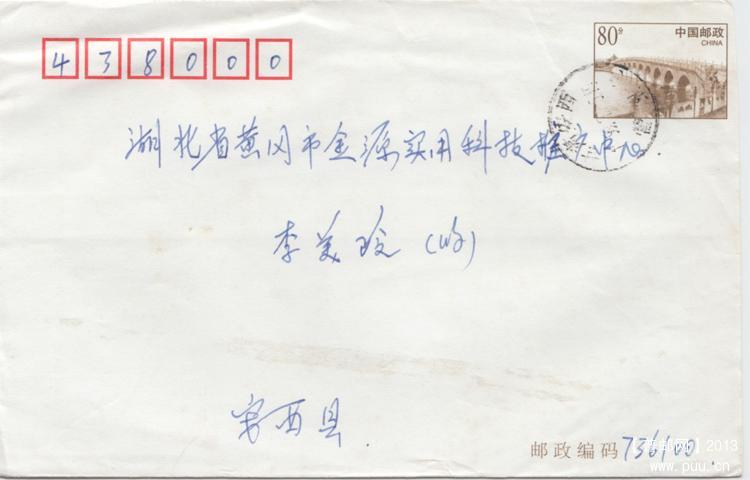 80分 中国邮政
CHINA
438000
湖北省黄冈市金源实用科技推广中心
李美玲(收)
安西县
邮政编码 736100
【普邮网】2013
www.puu.cn